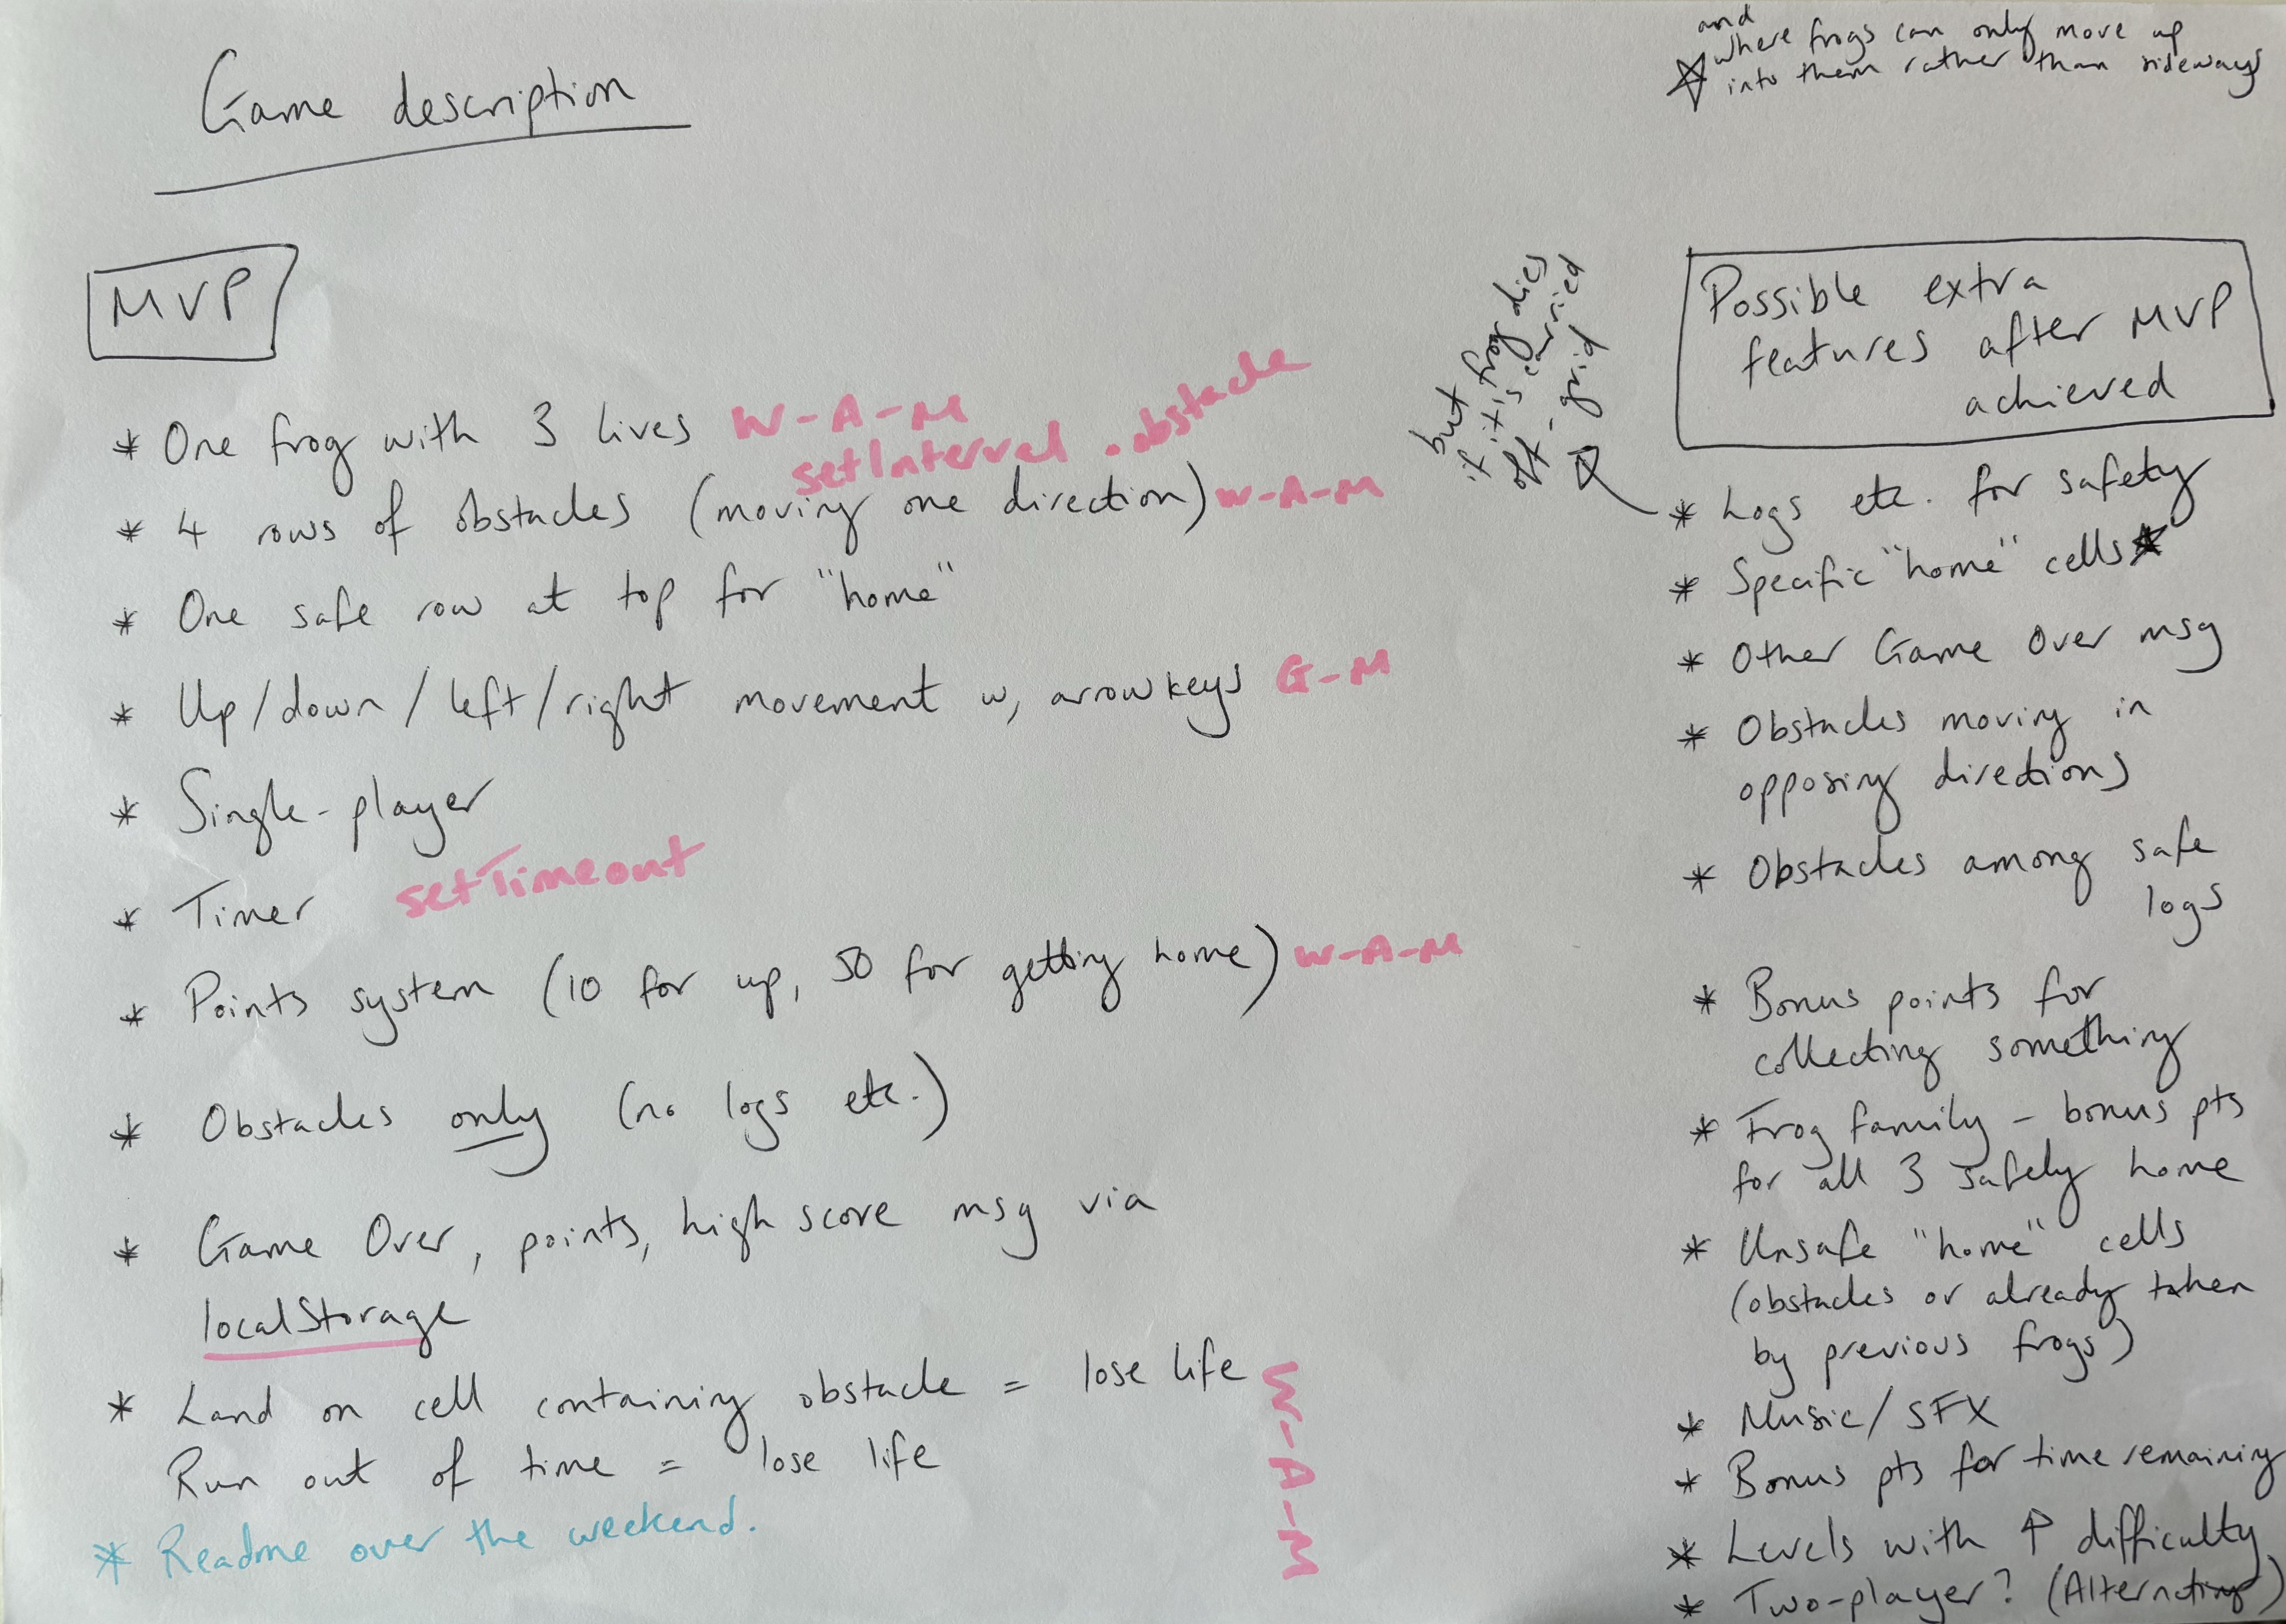 Game description
MVP
* One frog with 3 lives W-A-M
setInterval .obstacle
* 4 rows of obstacles (moving one direction) W-A-M
* One safe row at top for "home"
* Up/down/left/right movement w, arrowkeys G-M
* Single-player
* Timer setTimeout
* Points system (10 for up, 50 for getting home) W-A-M
* Obstacles only (no logs etc.)
* Game Over, points, high score msg via
localStorage
* Land on cell containing obstacle = lose life
Run out of time = lose life
W-A-M
* Readme over the weekend.
and
☆ where frogs can only move up
into them rather than sideways
Possible extra
features after MVP
achieved
* Logs etc. for safety
but frog dies
if it is carried
off-grid
* Specific "home" cells ★
* Other Game Over msg
* Obstacles moving in
opposing directions
* Obstacles among safe
logs
* Bonus points for
collecting something
* Frog family - bonus pts
for all 3 safely home
* Unsafe "home" cells
(obstacles or already taken
by previous frogs)
* Music/SFX
* Bonus pts for time remaining
* Levels with ↑ difficulty
* Two-player? (Alternating)